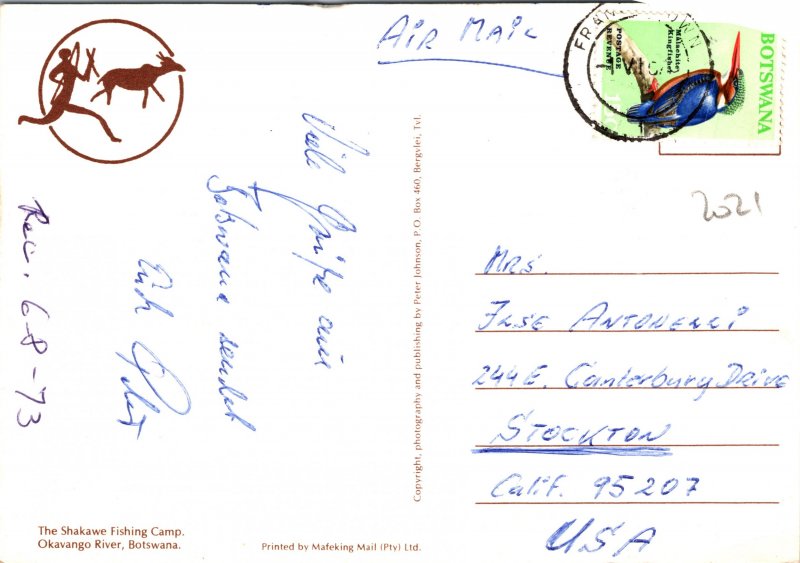 AIR MAIL
FRANCISTOWN
BOTSWANA
Malachite
Kingfisher
POSTAGE
REVENUE
2021
Viele Grüße aus
Botswana sendet
Euch Peter
Rec. 68-73
Mrs.
ILSE ANTONELLI
244 E. Canterbury Drive
STOCKTON
Calif. 95207
USA
Copyright, photography and publishing by Peter Johnson, P.O. Box 460, Bergvlei, Tvl.
The Shakawe Fishing Camp.
Okavango River, Botswana.
Printed by Mafeking Mail (Pty) Ltd.